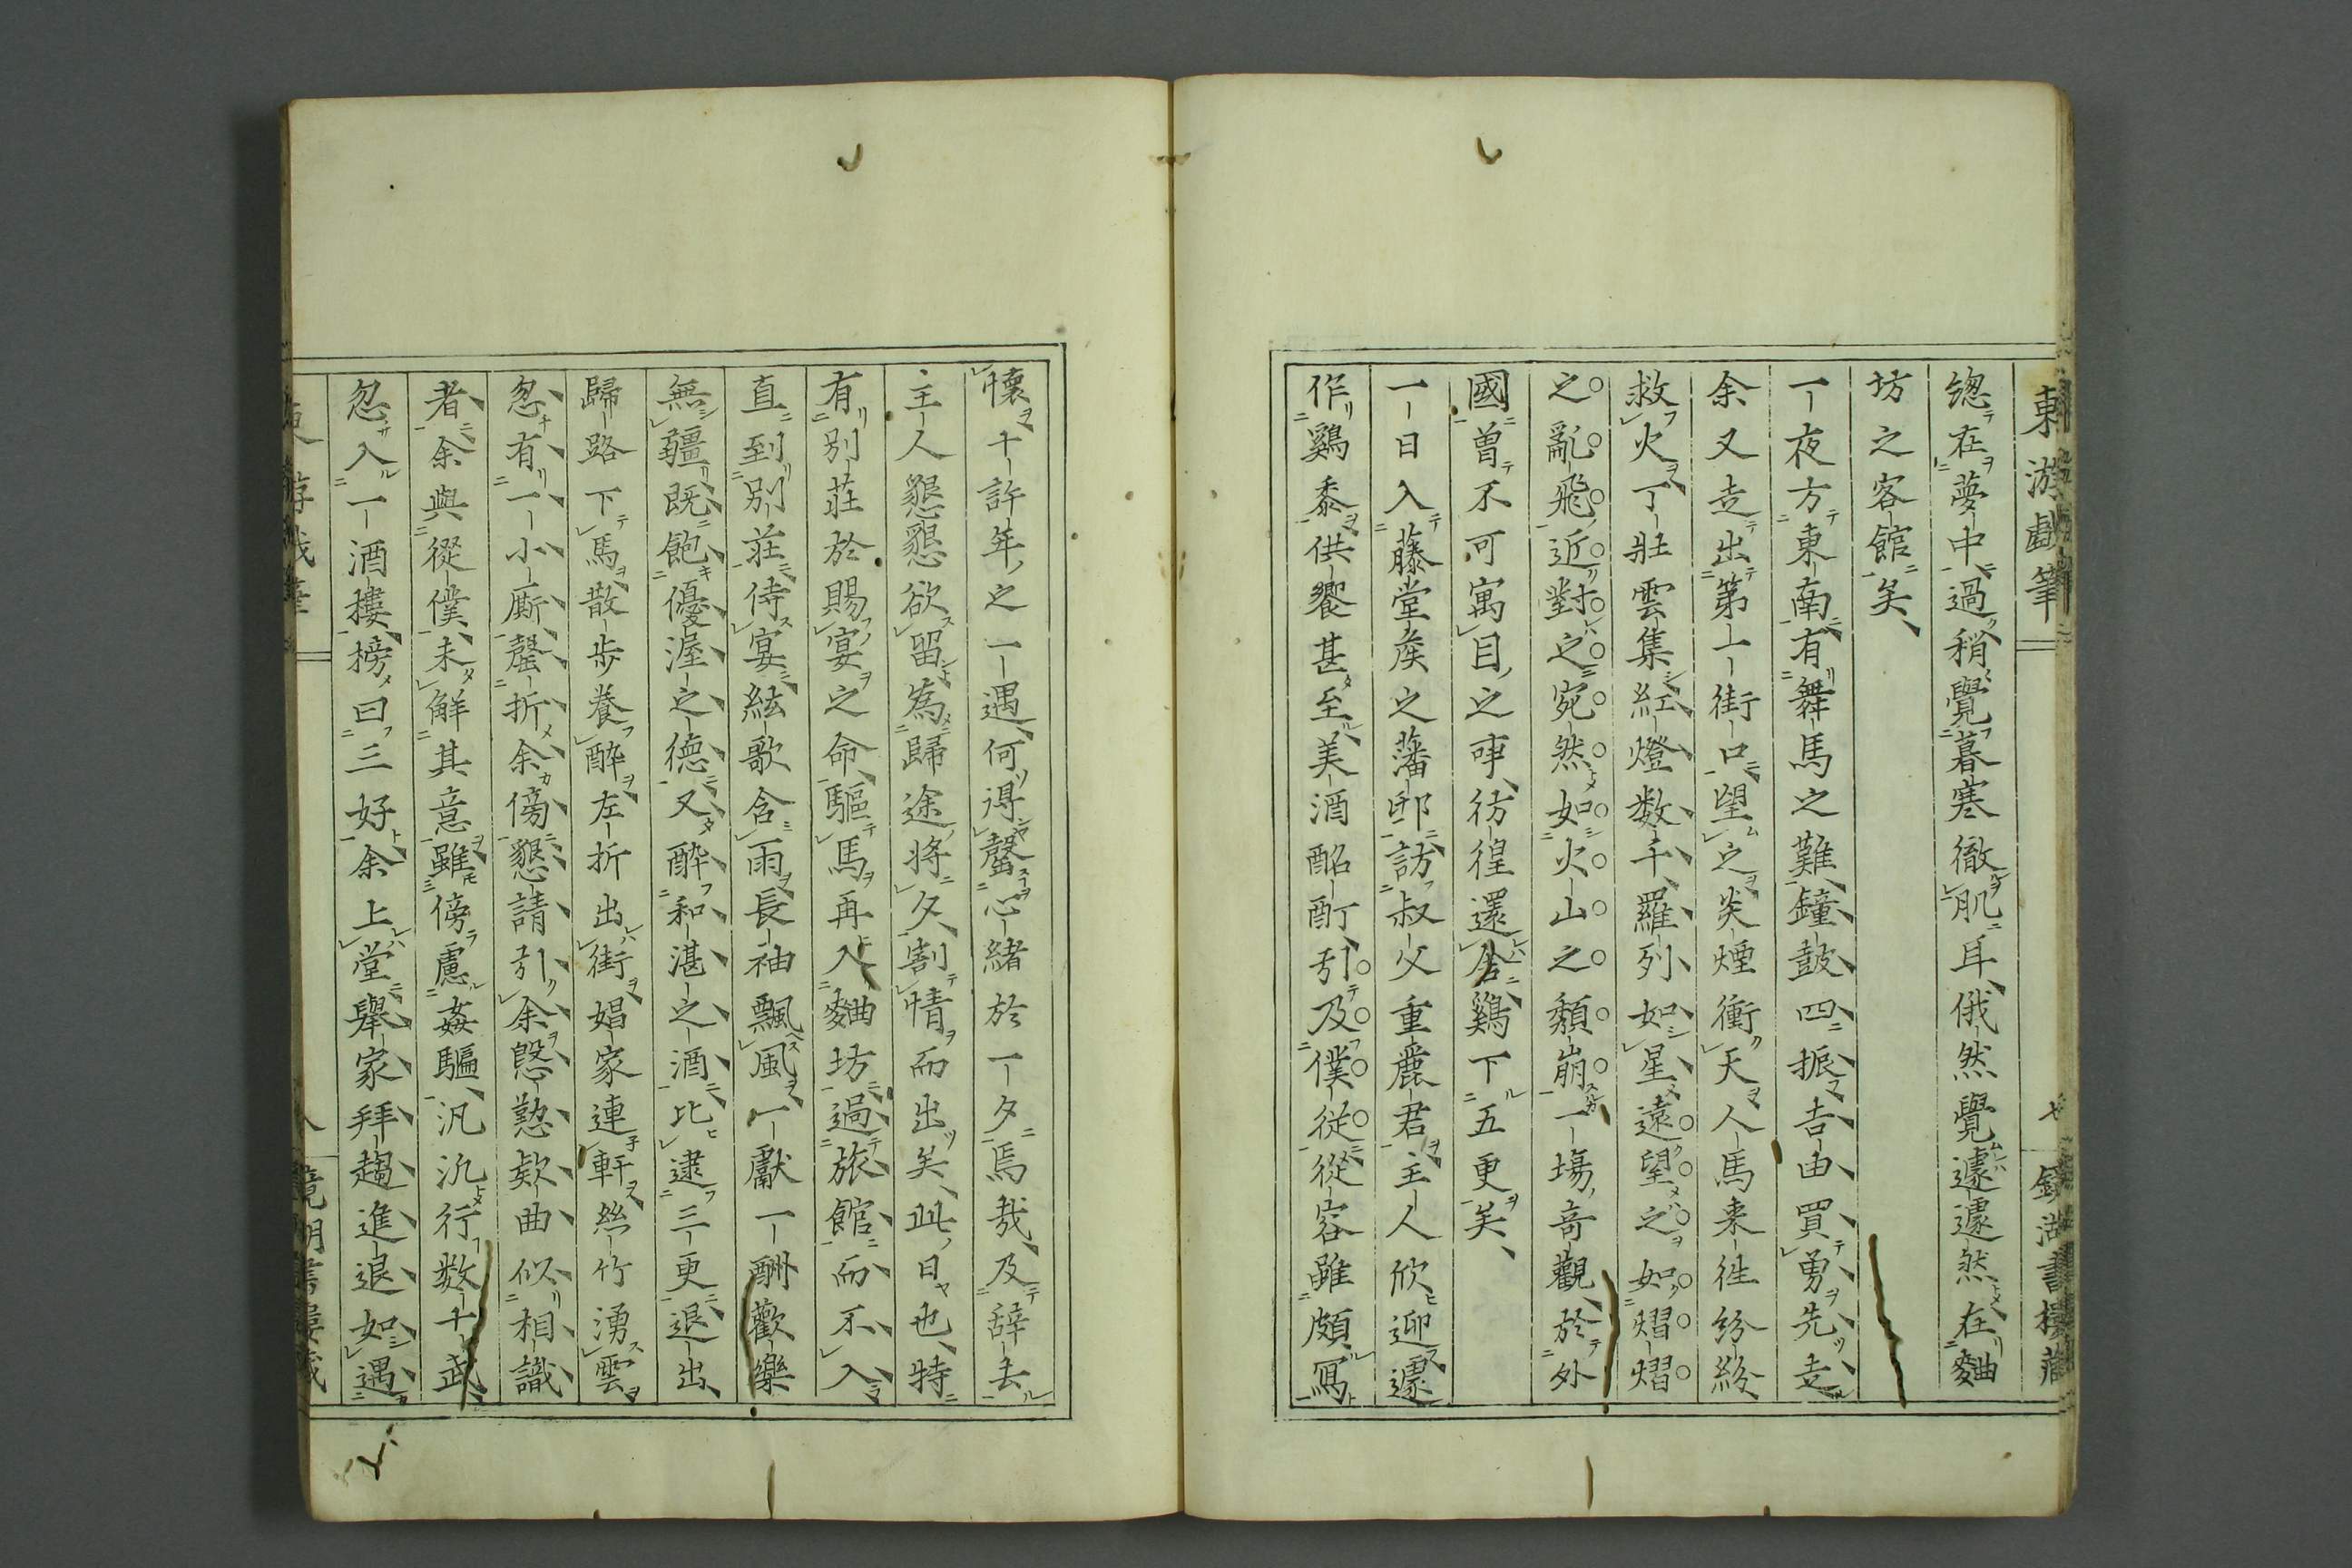 東游戲筆
七
鏡湖書樓藏
總在夢中過稍覺暮寒徹肌耳俄然覺遽遽然在麯
坊之客館矣
一夜方東南有舞馬之難鐘鼓四振吉由買勇先走
余又走出第一街口望之炎煙衝天人馬来徃紛紛
救火丁壯雲集紅燈数千羅列如星遠望之如熠熠
之亂飛近對之宛然如火山之頽崩一塲奇觀於外
國曽不可寓目之事彷徨還舍鷄下五更矣
一日入藤堂矦之藩邸訪叔父重麗君主人欣迎遽
作鷄黍供饗甚至美酒酩酊引及僕從從容雖頗冩
懐十許年之一遇何得罄心緒於一夕焉哉及辞去
主人懇懇欲留為歸途將夕割情而出矣此日也特
有別莊於賜宴之命驅馬再入麯坊過旅館而不入
直到別莊侍宴絃歌含雨長袖飄風一獻一酬歡樂
無疆既飽優渥之德又酔和湛之酒比逮三更退出
歸路下馬散歩養酔左折出街娼家連軒絲竹湧雲
忽有一小廝罄折余傍懇請引余慇懃欵曲似相識
者余與從僕未解其意雖傍慮姦騙汎汎行数十武
忽入一酒樓榜曰三好余上堂舉家拜趨進退如遇